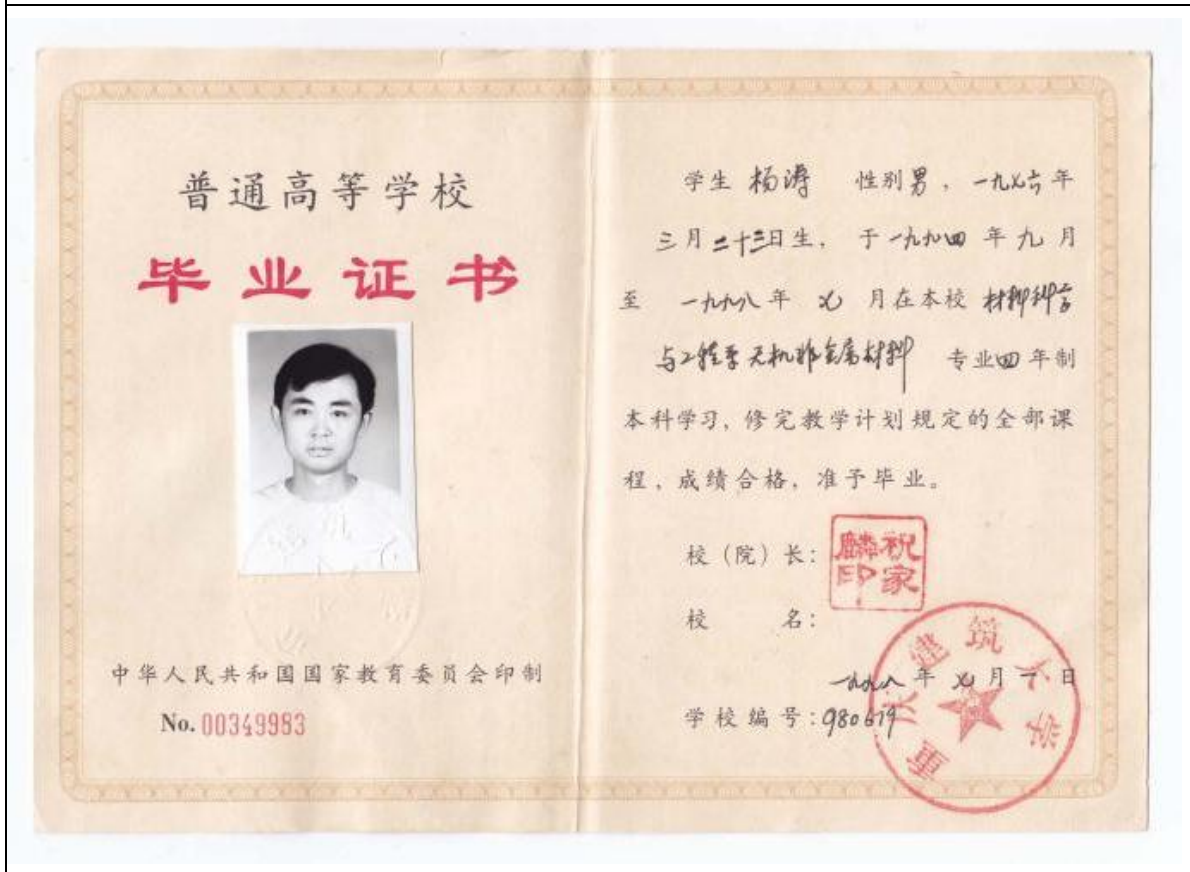 普通高等学校
毕业证书
中华人民共和国国家教育委员会印制
No. 00349983
学生 杨涛 性别男，一九七六年
三月二十三日生，于一九九四年九月
至 一九九八年 七 月在本校 材料科学
与工程系无机非金属材料 专业四年制
本科学习，修完教学计划规定的全部课
程，成绩合格，准予毕业。
校（院）长：
祝家麟印
校 名：
重庆建筑大学
一九九八年七月一日
学校编号：980619